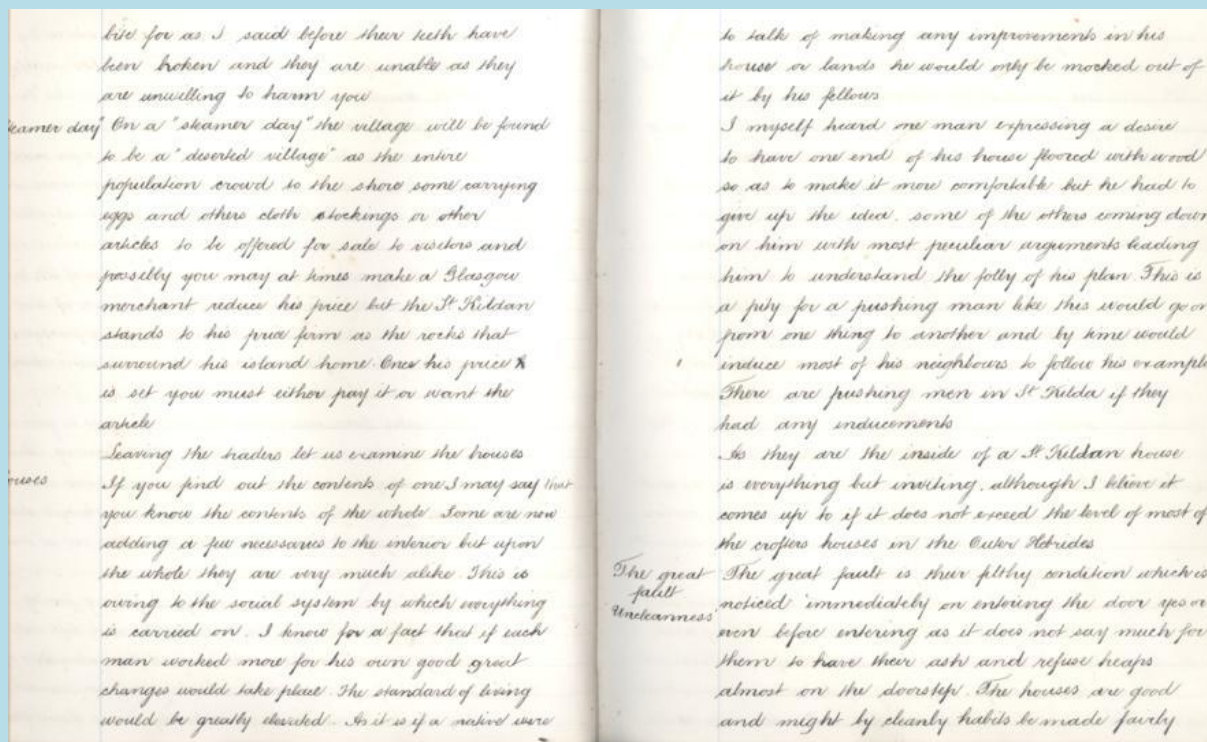 bite for as I said before their teeth have
been broken and they are unable as they
are unwilling to harm you
"steamer day" On a "steamer day" the village will be found
to be a "deserted village" as the entire
population crowd to the shore some carrying
eggs and others cloth stockings or other
articles to be offered for sale to visitors and
possibly you may at times make a Glasgow
merchant reduce his price but the St Kildan
stands to his price firm as the rocks that
surround his island home. Once his price
is set you must either pay it or want the
article
Leaving the traders let us examine the houses
ouses If you find out the contents of one I may say that
you know the contents of the whole. Some are now
adding a few necessaries to the interior but upon
the whole they are very much alike. This is
owing to the social system by which everything
is carried on. I know for a fact that if each
man worked more for his own good great
changes would take place. The standard of living
would be greatly elevated. As it is if a native were
to talk of making any improvements in his
house or lands he would only be mocked out of
it by his fellows
I myself heard one man expressing a desire
to have one end of his house floored with wood
so as to make it more comfortable but he had to
give up the idea. some of the others coming down
on him with most peculiar arguments leading
him to understand the folly of his plan. This is
a pity for a pushing man like this would go on
from one thing to another and by time would
induce most of his neighbours to follow his example
There are pushing men in St Kilda if they
had any inducements
As they are the inside of a St Kildan house
is everything but inviting, although I believe it
comes up to if it does not exceed the level of most of
the crofters houses in the Outer Hebrides
The great fault Uncleanness The great fault is their filthy condition which is
noticed immediately on entering the door yes or
even before entering as it does not say much for
them to have their ash and refuse heaps
almost on the doorstep. The houses are good
and might by cleanly habits be made fairly